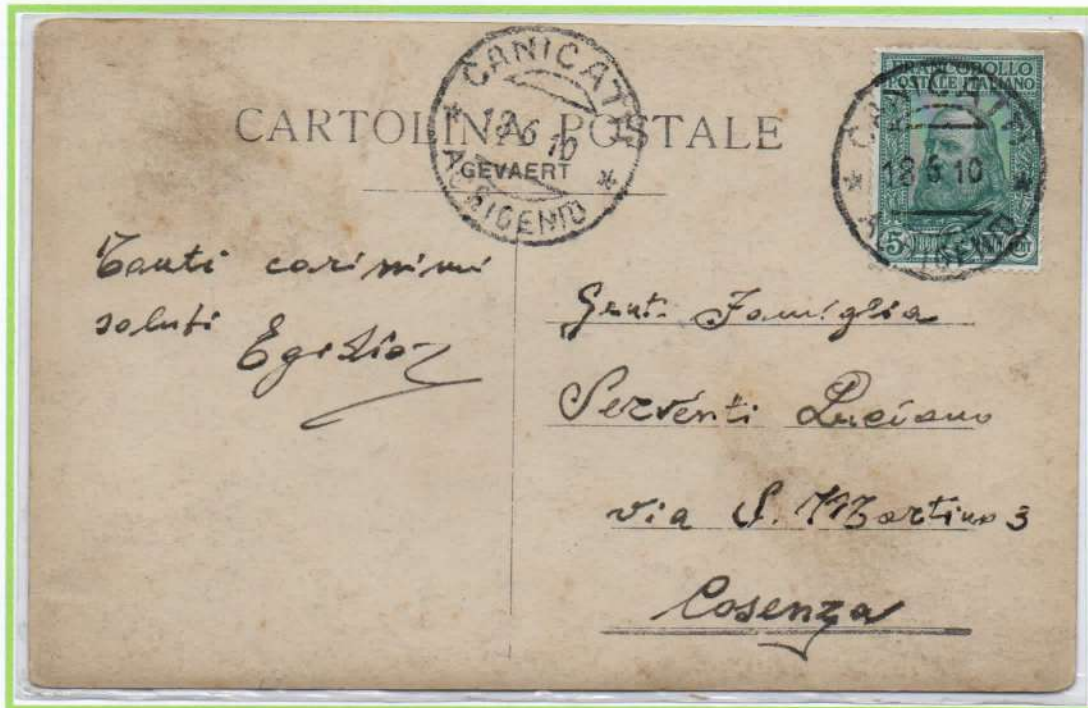 CARTOLINA POSTALE
GEVAERT
CANICATTI
18 6 10
FRANCOBOLLO
POSTALE ITALIANO
CANICATTI
18 6 10
5
Tanti carissimi
saluti
Egidio
Gent. Famiglia
Serventi Luciano
via S. Martino 3
Cosenza